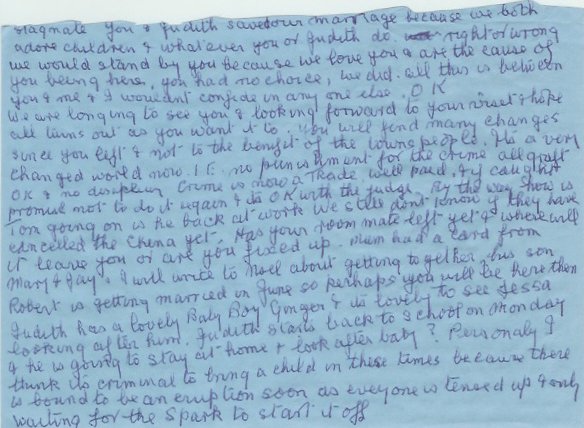 stagnate you & Judith saved our marriage because we both
adore children & whatever you or Judith do right or wrong
we would stand by you because we love you & are the cause of
you being here, you had no choice, we did. all this is between
you & me & I wouldnt confide in any one else. OK
We are longing to see you & looking forward to your visit & hope
all turns out as you want it to. you will find many changes
since you left & not to the benefit of the townspeople. Its a very
changed world now. I.E. no punishment for the crime all graft
OK & no Crime is now a trade, well paid, & if caught
promise not to do it again & its OK with the judge. By the way how is
Tom going on is he back at work We still dont know if they have
cancelled the China yet. Has your room mate left yet & where will
it leave you or are you fixed up. Mum had a card from
Mary & Jay. I will write to Noel about getting together, his son
Robert is getting married in June so perhaps you will be here then
Judith has a lovely Baby Boy Ginger & its lovely to see Jessa
looking after him. Judith starts back to school on Monday
& he is going to stay at home & look after baby? Personaly I
think its criminal to bring a child in these times because there
is bound to be an eruption soon as everyone is tensed up & only
waiting for the spark to start it off